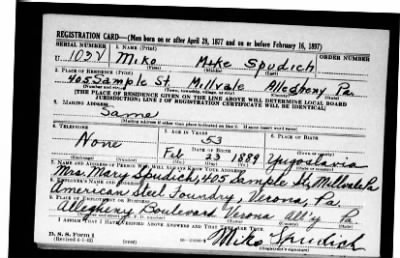 REGISTRATION CARD—(Men born on or after April 28, 1877 and on or before February 16, 1897)
SERIAL NUMBER 1. NAME (Print) ORDER NUMBER
U 1032 Miko Mike Spudich
(First) (Middle) (Last)
2. PLACE OF RESIDENCE (Print)
405 Sample St. Millvale Allegheny Pa.
(THE PLACE OF RESIDENCE GIVEN ON THE LINE ABOVE WILL DETERMINE LOCAL BOARD
JURISDICTION; LINE 2 OF REGISTRATION CERTIFICATE WILL BE IDENTICAL)
3. MAILING ADDRESS
Same
[Mailing address if other than place indicated on line 2. If same insert word same]
4. TELEPHONE 5. AGE IN YEARS 6. PLACE OF BIRTH
53
None DATE OF BIRTH Yugoslavia
Feb 23 1889
(Exchange) (Number) (Mo.) (Day) (Yr.) (State or country)
7. NAME AND ADDRESS OF PERSON WHO WILL ALWAYS KNOW YOUR ADDRESS
Mrs. Mary Spudich, 405 Sample St, Millvale Pa
8. EMPLOYER'S NAME AND ADDRESS
American Steel Foundry, Verona, Pa.
9. PLACE OF EMPLOYMENT OR BUSINESS
Allegheny Boulevard Verona All'y Pa
I AFFIRM THAT I HAVE VERIFIED ABOVE ANSWERS AND THAT THEY ARE TRUE.
D. S. S. Form 1
(Revised 4-1-42) Miko Spudich